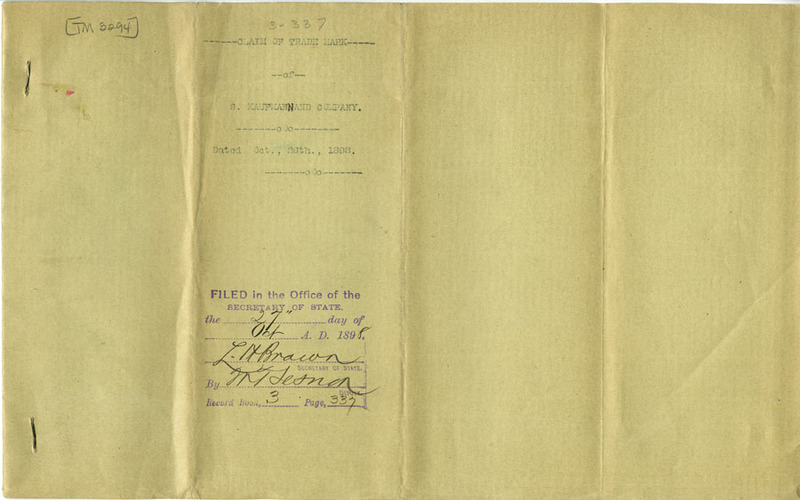 [TM 3294]
3-337
------CLAIM OF TRADE MARK-----
--of--
S. KAUFMANNAND COMPANY.
-------o0o--------
Dated Oct., 26th., 1898.
-------o0o--------
FILED in the Office of the
SECRETARY OF STATE.
the 27" day of
Oct A. D. 1898.
L. H. Brown
SECRETARY OF STATE.
By
DEPUTY.
Record Book, 3 Page, 337